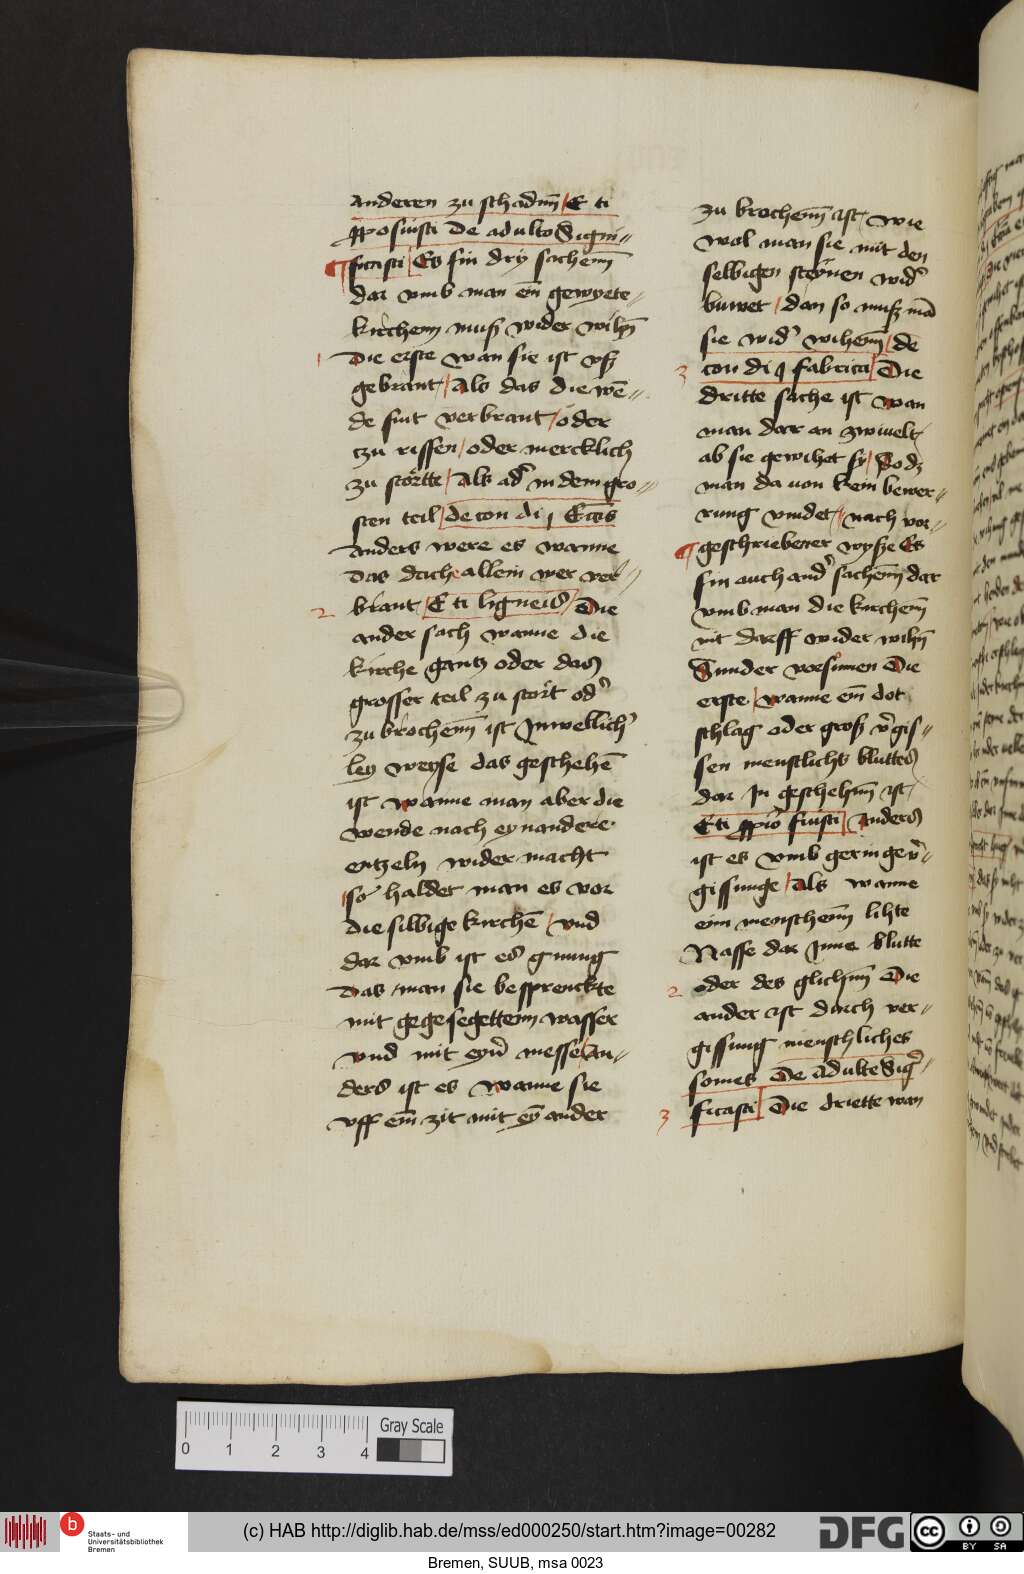 anderen zu schadm̄ / E ti
ꝓposuisti de adulto Signi=
ficasti Es sin dry sachenn̄
dar vmb man ein gewyete=
kirchenn muß wider wihn̄
1 Die erste wan sie ist vß
gebrant / Als das die wē=
de sint verbrant / oder
tzu rissen / oder mercklich
zu stortte / Als ad' in dem gro=
sten teil / de con di j Eccīs
anders were es wanne
das dach allein wer ver=
2 brant / E ti ligneis / Die
ander sach wanne die
kirche gantz oder das
grosser teil zu stort od'
zu brochenn̄ ist Inwellich'
ley weyse das geschehē
ist wanne man aber die
wende nach eynandere
entzeln wider macht
so haldet man es vor
die silbige kirchē / vnd
dar vmb ist es gnung
das / man sie besprenckte
mit gegesegettenn wasser
vnd mit eyn' messe An=
ders ist es wanne sie
vff ein̄ zit mit ey' ander
zu brochenn̄ ist / wie
wol man sie mit den
selbigen steynen wid'
buwet / dan so muß mā
sie wid' wihenn̄ / de
3 con di j fabrica / Die
dritte sache ist wan
man dar an zwiuelt /
ab sie gewihet sy / So dz
man da uon kein bewer=
rung vindet / nach vor=
geschriebener wysze Es
sin auch and' sachenn̄ dar
vmb man die kirchenn̄
nit darff wider wihn̄
Sunder versunen Die
erste / wanne ein̄ dot
schlag oder groß v'gis=
sen menschlichs bluttes
dar In geschehnn̄ ist /
E ti ꝓpo' suisti / Anders
ist es vmb geringe v'=
gissunge / Als wanne
eim menschenn̄ lihte
Nasse dar Inne blutte
2 oder des glichnn̄ Die
ander ist durch ver=
gissung menschliches
somes De adulte Sig'=
3 ficasti / Die driette wan
0 1 2 3 4
Gray Scale
b Staats- und
Universitätsbibliothek
Bremen
(c) HAB http://diglib.hab.de/mss/ed000250/start.htm?image=00282
DFG
cc BY SA
Bremen, SUUB, msa 0023